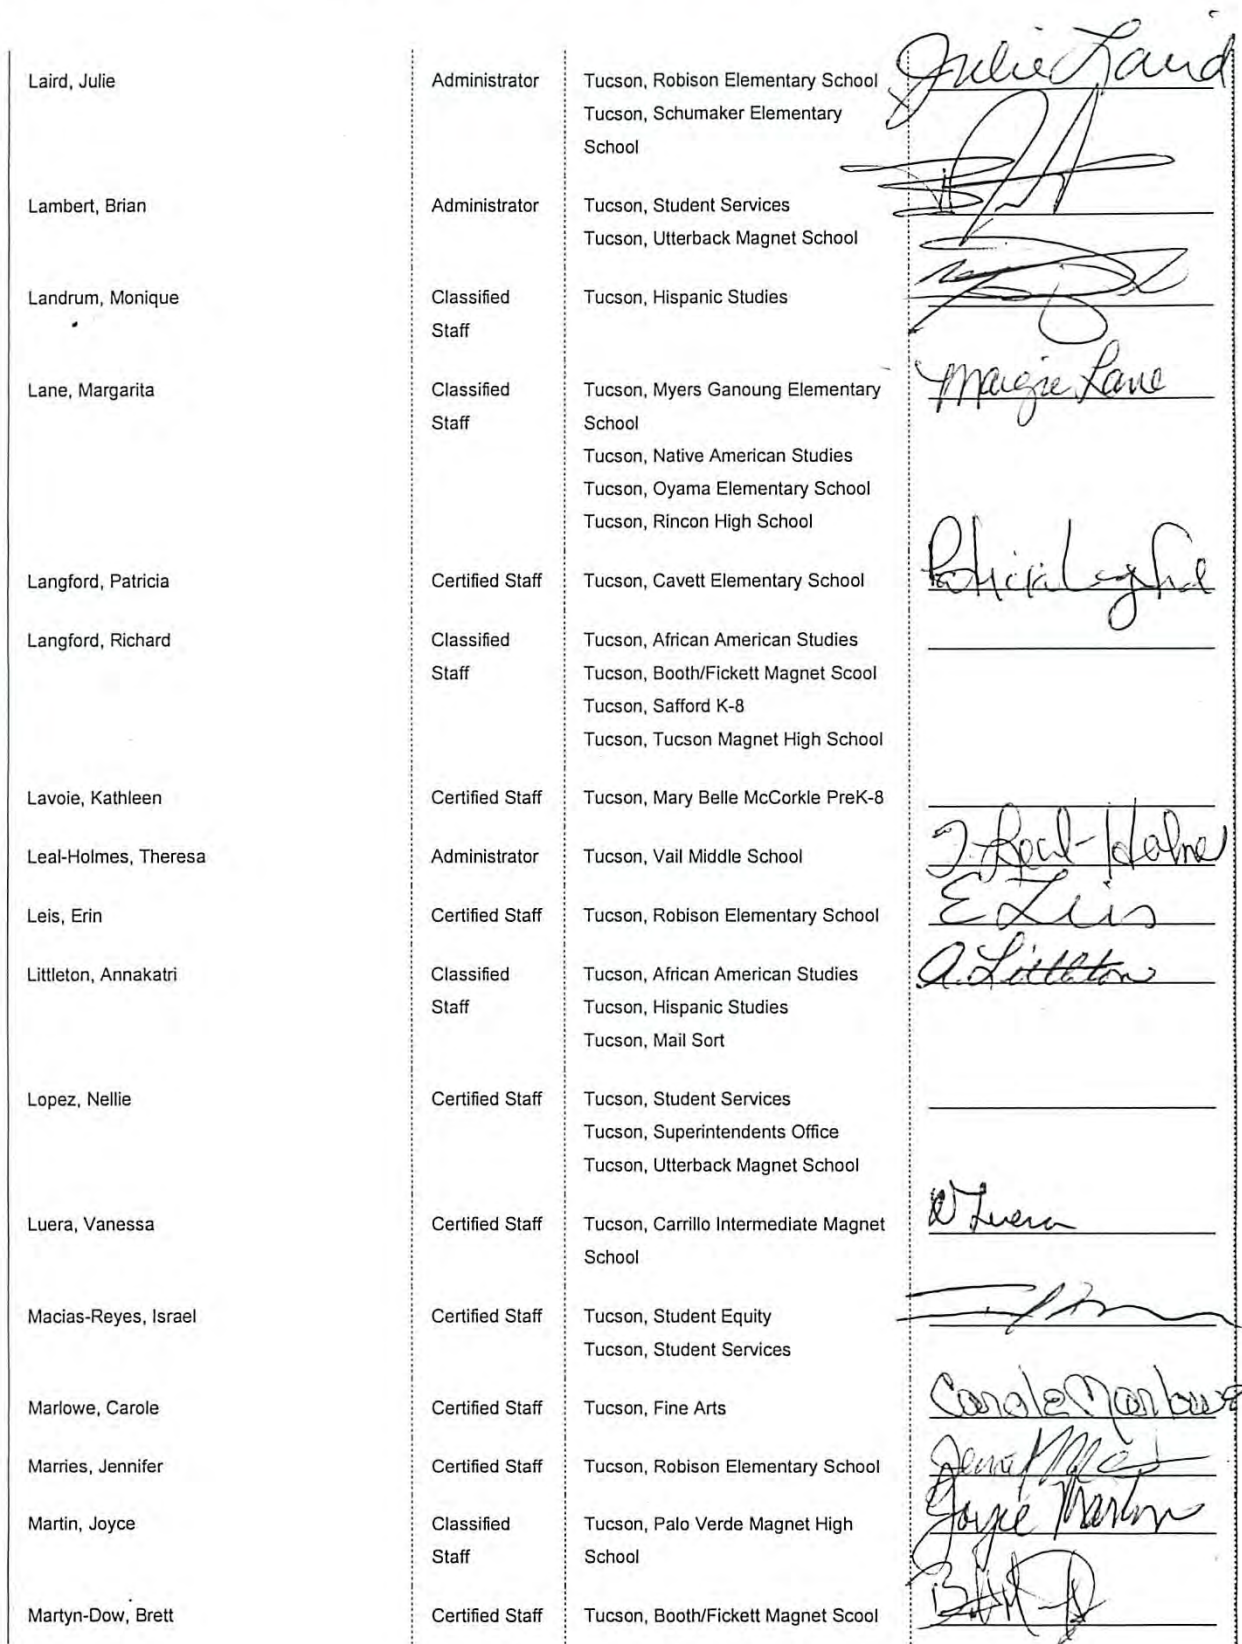 Laird, Julie Administrator Tucson, Robison Elementary School Julie Laird
Tucson, Schumaker Elementary
School
Lambert, Brian Administrator Tucson, Student Services
Tucson, Utterback Magnet School
Landrum, Monique Classified Tucson, Hispanic Studies
Staff
Lane, Margarita Classified Tucson, Myers Ganoung Elementary Margie Lane
Staff School
Tucson, Native American Studies
Tucson, Oyama Elementary School
Tucson, Rincon High School
Langford, Patricia Certified Staff Tucson, Cavett Elementary School Patricia Langford
Langford, Richard Classified Tucson, African American Studies
Staff Tucson, Booth/Fickett Magnet Scool
Tucson, Safford K-8
Tucson, Tucson Magnet High School
Lavoie, Kathleen Certified Staff Tucson, Mary Belle McCorkle PreK-8
Leal-Holmes, Theresa Administrator Tucson, Vail Middle School T. Leal-Holmes
Leis, Erin Certified Staff Tucson, Robison Elementary School E Leis
Littleton, Annakatri Classified Tucson, African American Studies A. Littleton
Staff Tucson, Hispanic Studies
Tucson, Mail Sort
Lopez, Nellie Certified Staff Tucson, Student Services
Tucson, Superintendents Office
Tucson, Utterback Magnet School
Luera, Vanessa Certified Staff Tucson, Carrillo Intermediate Magnet V Luera
School
Macias-Reyes, Israel Certified Staff Tucson, Student Equity
Tucson, Student Services
Marlowe, Carole Certified Staff Tucson, Fine Arts Carole Marlowe
Marries, Jennifer Certified Staff Tucson, Robison Elementary School
Martin, Joyce Classified Tucson, Palo Verde Magnet High Joyce Martin
Staff School
Martyn-Dow, Brett Certified Staff Tucson, Booth/Fickett Magnet Scool